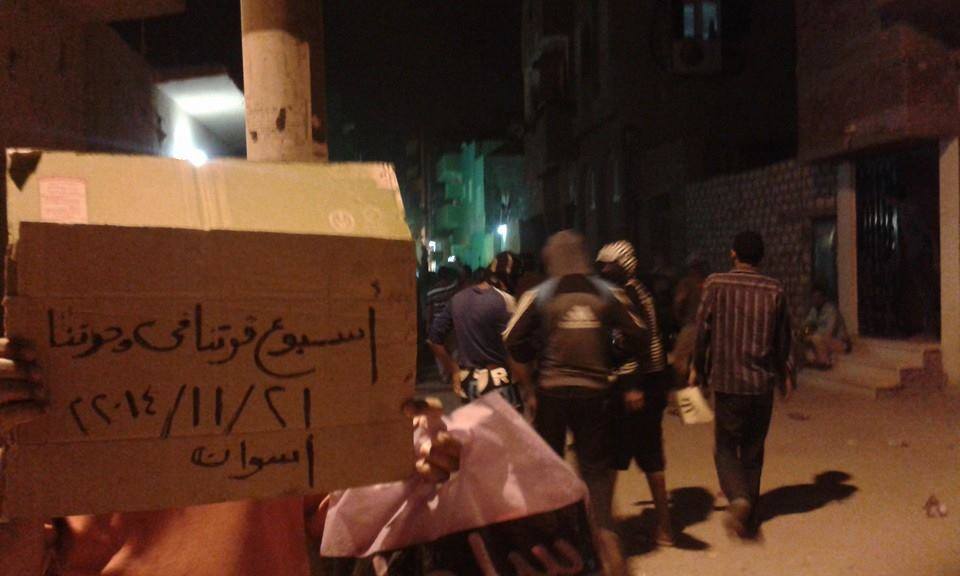 أسبوع قوتنا في وحدتنا
٢١/١١/٢٠١٤
أسوان